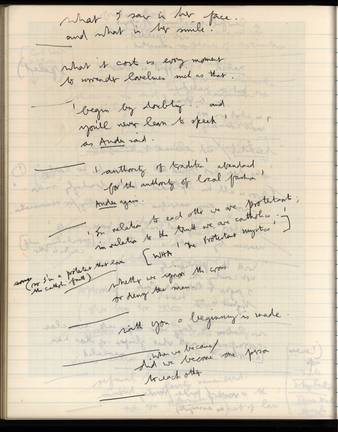 what I saw in her face.
and what in her smile.
what it cost us every moment
to surrender loveliness such as that.
'begin by doubting and
you'll never learn to speak
as Auden said.
'authority of tradition' abandoned
for the authority of local fashion'
Auden again.
'In relation to each other we are protestant;
in relation to the truth we are catholic.'
[WHA 'The Protestant Mystics']
(or I'm a protestant
the catholic faith)
whether we ignore the cross
or deny the man
with you a beginning is made
when we became/
did we become one person
to each other